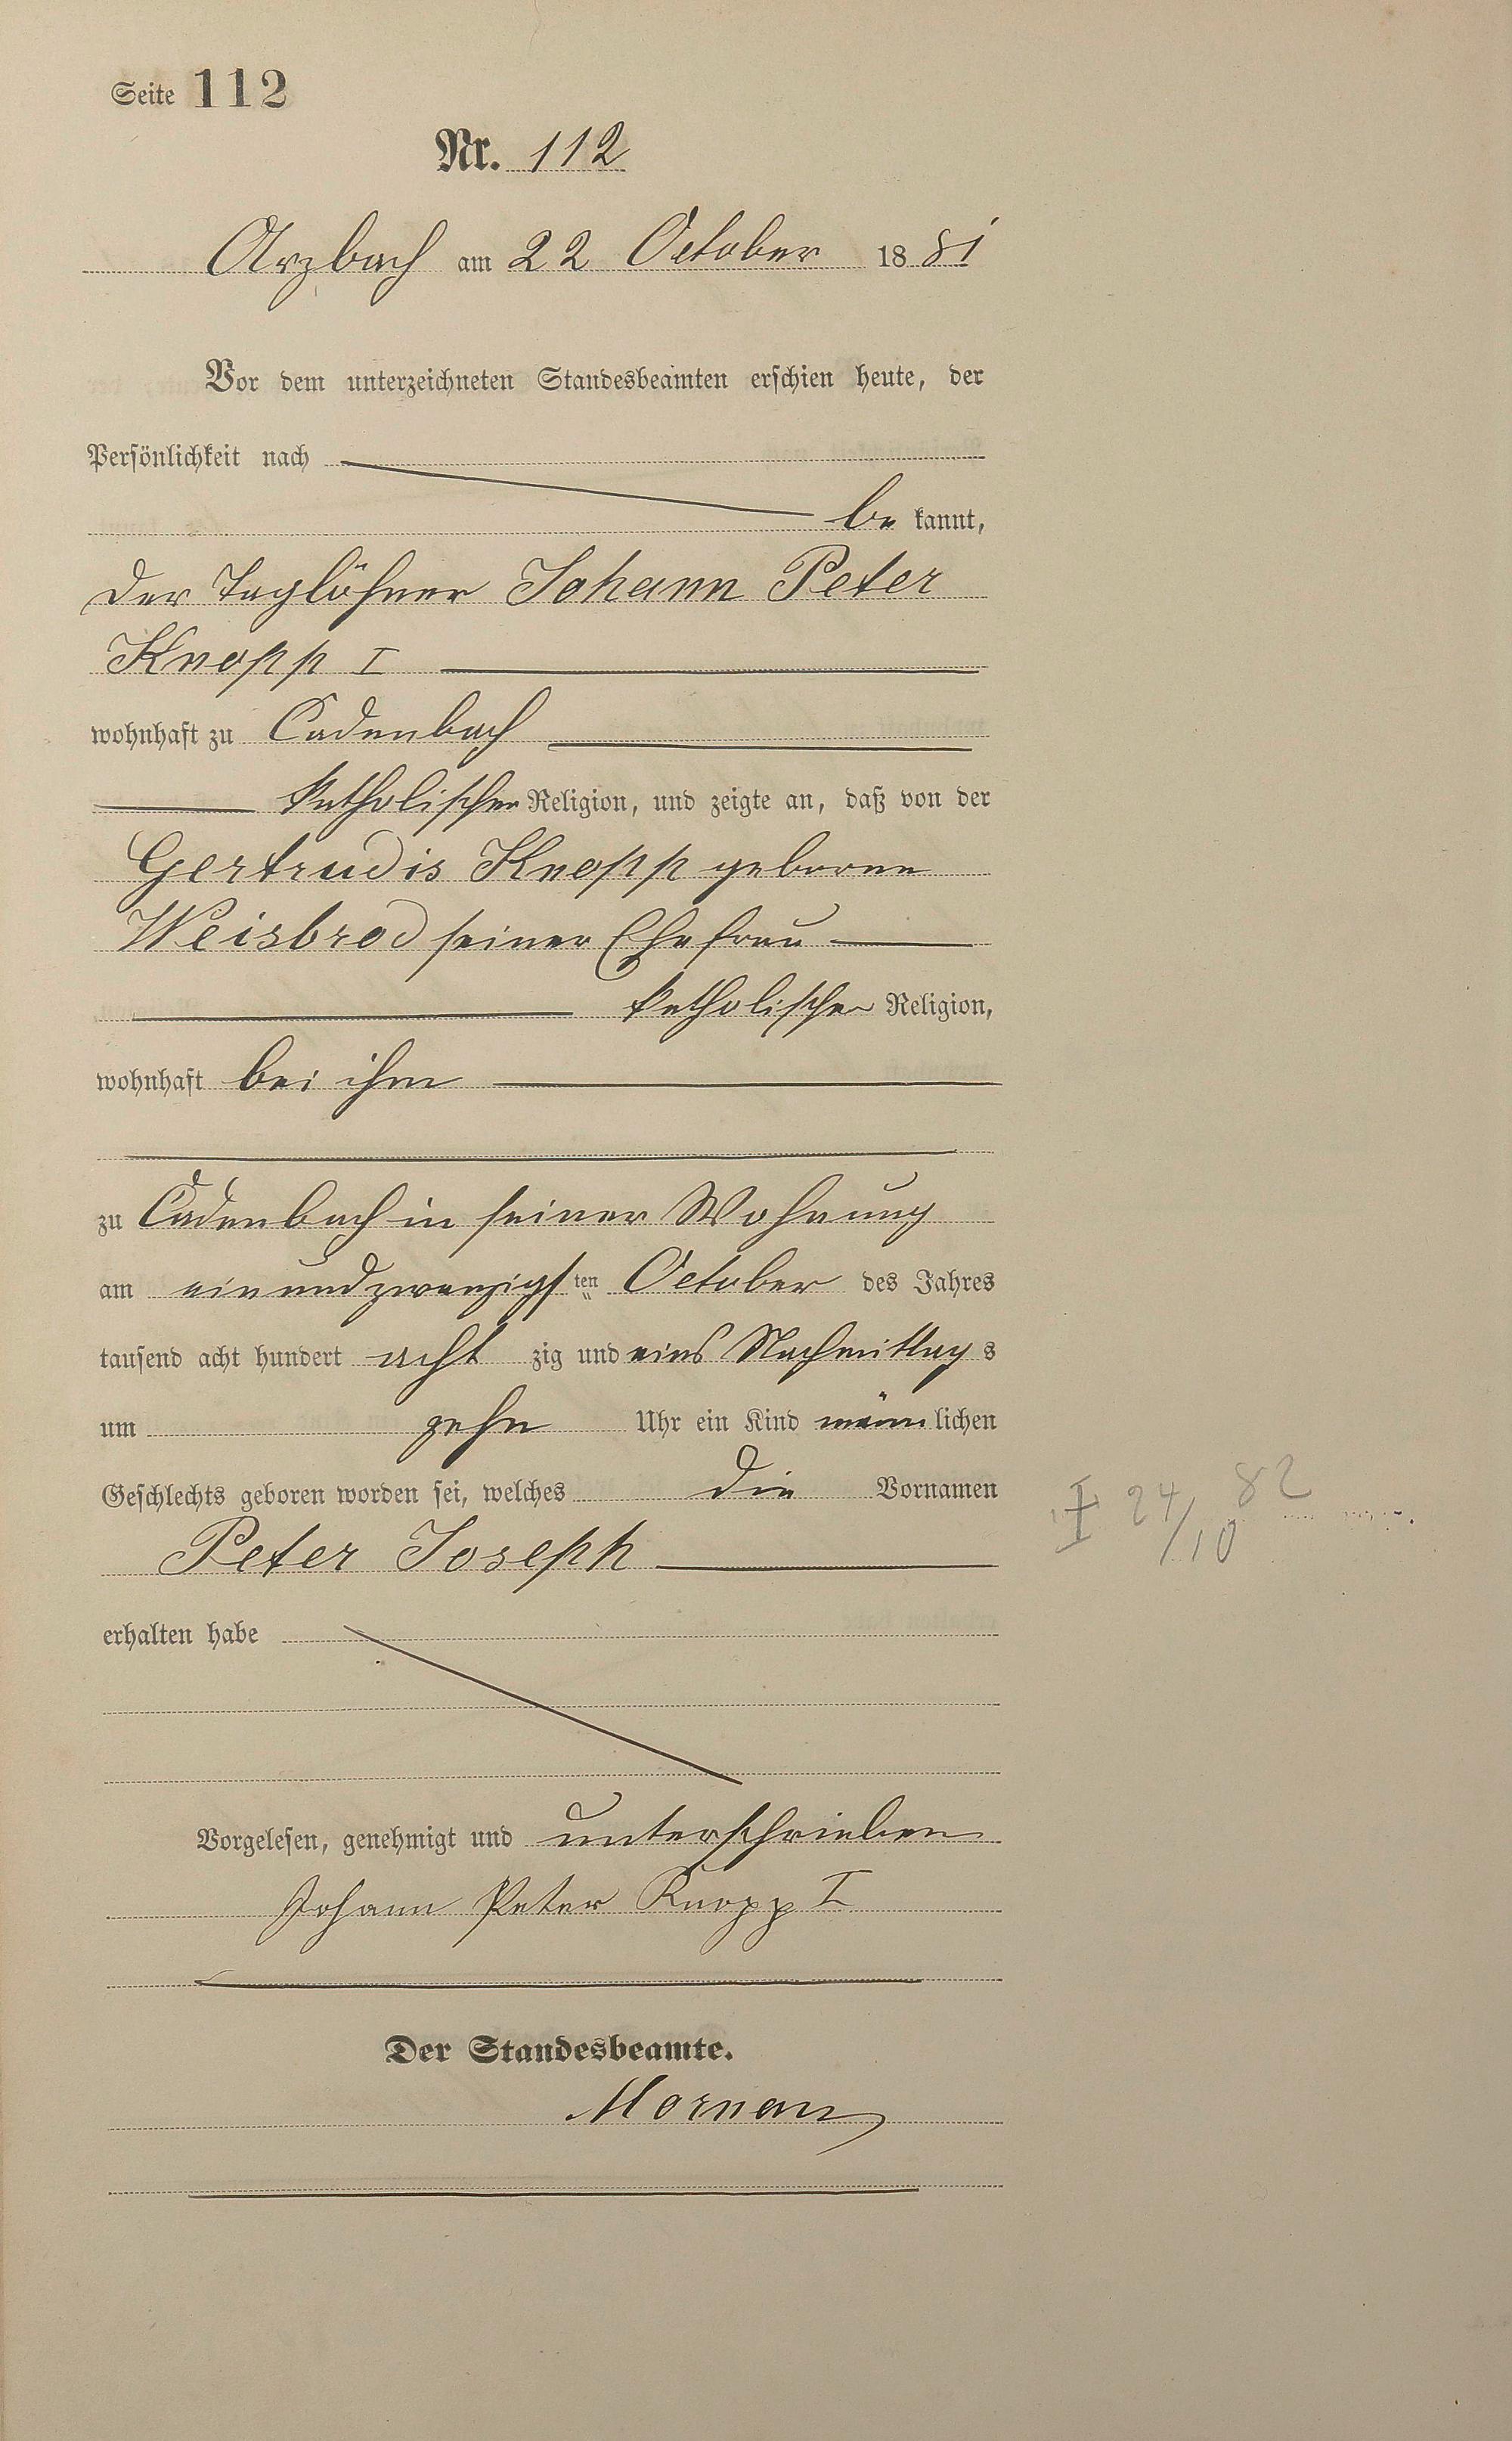 Seite 112
Nr. 112
Arzbach am 22 October 1881
Vor dem unterzeichneten Standesbeamten erschien heute, der
Persönlichkeit nach
be kannt,
der Taglöhner Johann Peter
Knopp I
wohnhaft zu Cadenbach
katholischer Religion, und zeigte an, daß von der
Gertrudis Knopp geborene
Weisbrod seiner Ehefrau
katholischer Religion,
wohnhaft bei ihm
zu Cadenbach in seiner Wohnung
am einundzwanzigsten October des Jahres
tausend acht hundert acht zig und eins Nachmittags
um zehn Uhr ein Kind männlichen
Geschlechts geboren worden sei, welches die Vornamen
Peter Joseph
erhalten habe
† 24/10 82
Vorgelesen, genehmigt und unterschrieben
Johann Peter Knopp I
Der Standesbeamte.